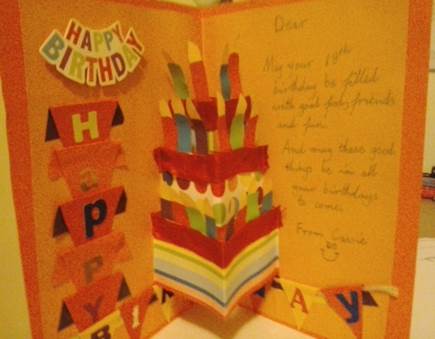 HAPPY
BIRTHDAY
H
a
p
p
y
BI
AY
Dear
May your 18th
birthday be filled
with good food, friends
and fun.
And may these good
things be in all
your birthdays
to come.
From Cassie